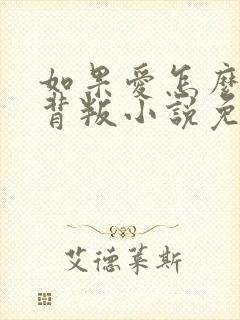 如果愛怎麼
背叛小說免
艾德萊斯